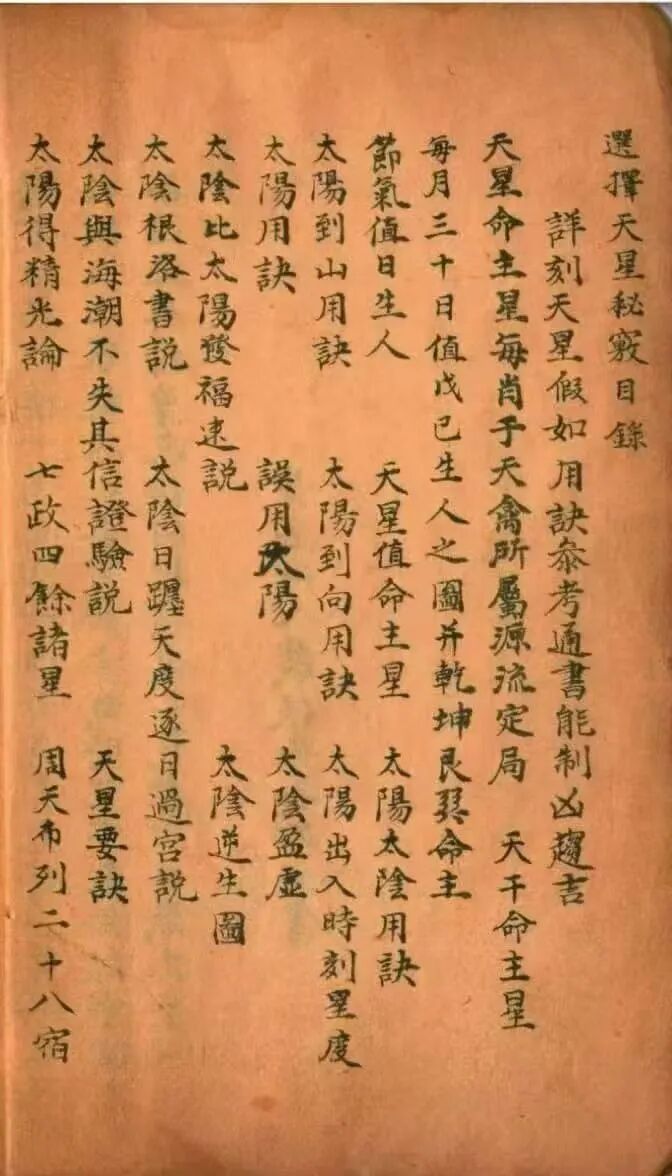 選擇天星秘竅目錄
詳刻天星假如用訣叅考通書能制凶趨吉
天星命主星每肖于天禽所屬源流定局 天干命主星
每月三十日值戊己生人之圖并乾坤艮巽命主
節氣值日生人 天星值命主星 太陽太陰用訣
太陽到山用訣 太陽到向用訣 太陽出入時刻星度
太陽用訣 誤用太陽 太陰盈虛
太陰比太陽發福速說 太陰逆生圖
太陰根洛書說 太陰日躔天度逐日過宮說
太陰與海潮不失其信證驗說 天星要訣
太陽得精光論 七政四餘諸星 周天布列二十八宿